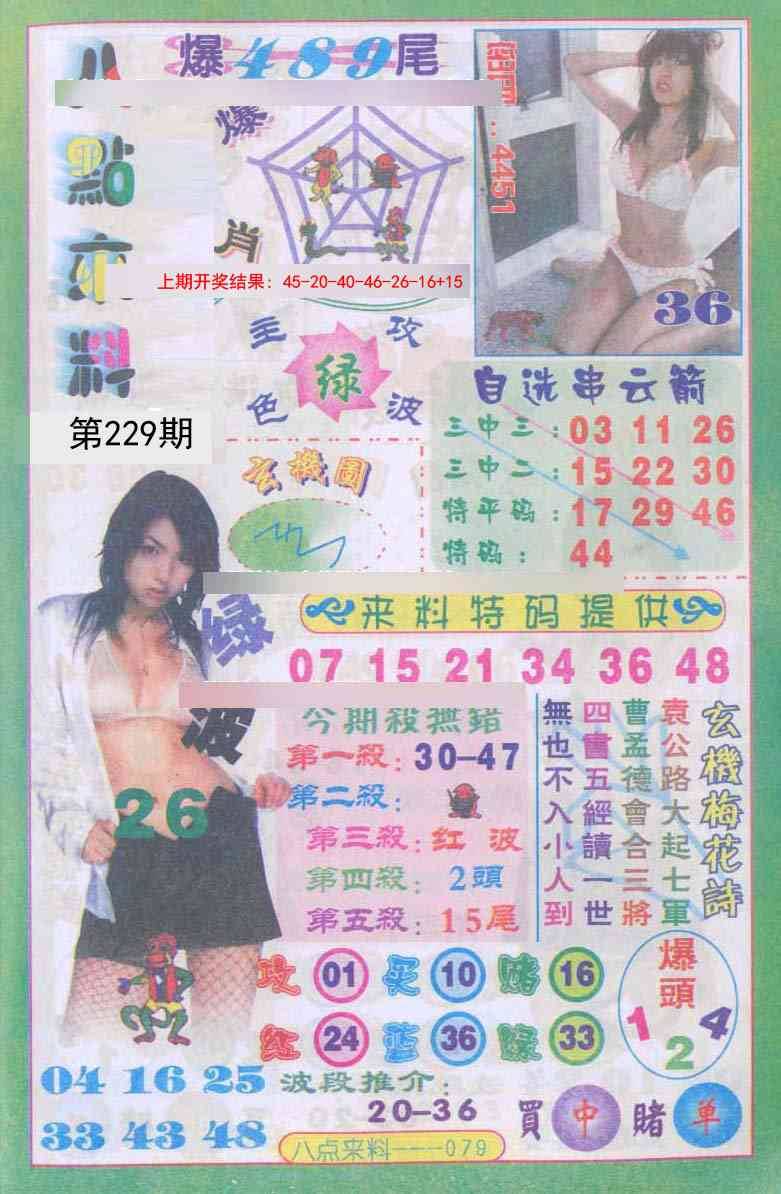 八點來料
爆489尾
爆肖
出門:4451
36
上期开奖结果：45-20-40-46-26-16+15
主攻
绿
色波
第229期
玄機圖
自选串云箭
三中三：03 11 26
三中二：15 22 30
特平码：17 29 46
特码：44
绿波
26
来料特码提供
07 15 21 34 36 48
今期殺無錯
第一殺：30-47
第二殺：
第三殺：红波
第四殺：2頭
第五殺：15尾
玄機梅花詩
袁公路大起七軍
曹孟德會合三將
四書五經讀一世
無也不入小人到
攻 01 买 10 赌 16
红 24 蓝 36 绿 33
爆頭
1 2 4
04 16 25
33 43 48
波段推介：
20-36
買中賭单
八点来料---079